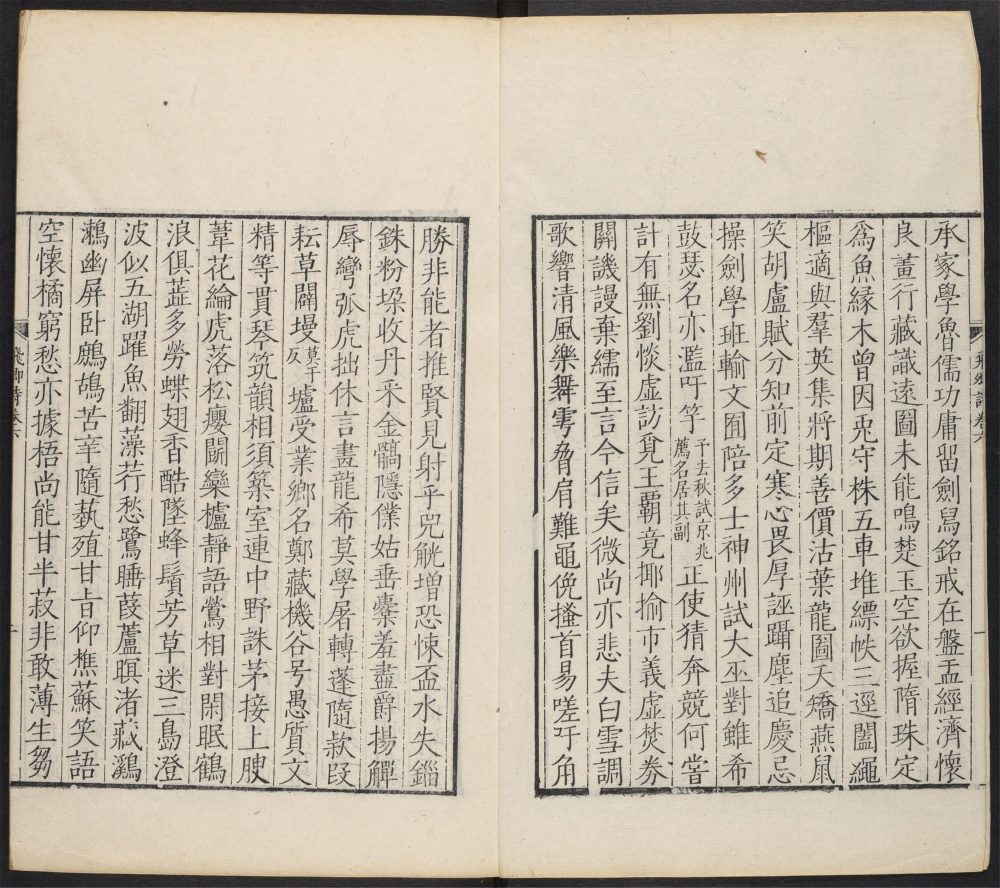 承家學魯儒功庸留劍舄銘戒在盤盂經濟懷
良畫行藏識遠圖未能鳴楚玉空欲握隋珠定
爲魚緣木曾因兎守株五車堆縹帙三逕闔繩
樞適與羣英集將期善價沽葉龍圖夭矯燕鼠
笑胡盧賦分知前定寒心畏厚誣躡塵追慶忌
操劍學班輸文囿陪多士神州試大巫對雖希
鼓瑟名亦濫吁竽予去秋試京兆薦名居其副正使猜奔競何嘗
計有無劉惔虛訪覓王霸竟揶揄市義虛焚券
關譏謾棄繻至言今信矣微尚亦悲夫白雪調
歌響清風樂舞雩脅肩難黽俛搔首易嗟吁角
勝非能者推賢見射乎兕觥增恐悚盃水失錙
銖粉垜收丹采金髇隱僕姑垂櫜羞盡爵揚觶
辱彎弧虎拙休言畫龍希莫學屠轉蓬隨欵段
耘草闢墁莫干反壚受業鄉名鄭藏機谷号愚質文
精等貫琴筑韻相須築室連中野誅茅接上腴
葦花綸虎落松癭鬭欒櫨靜語鶯相對閑眠鶴
浪俱蘂多勞蝶翅香酷墜蜂鬚芳草迷三島澄
波似五湖躍魚翻藻荇愁鷺睡葭蘆暝渚藏鸂
鶒幽屏卧鷓鴣苦辛隨蓺殖甘旨仰樵蘇笑語
空懷橘窮愁亦據梧尚能甘半菽非敢薄生芻